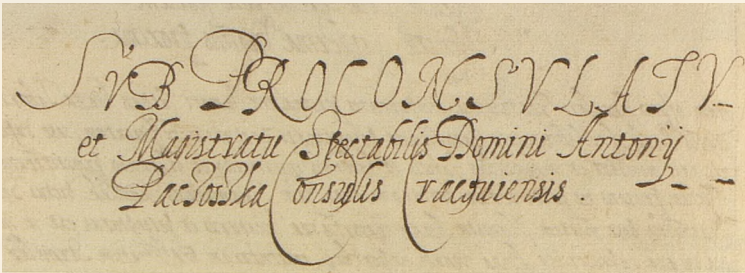 SVB PROCONSVLATV_
et Magistratu Spectabilis Domini Antonij
Pachoshka Consulis Cracouiensis .